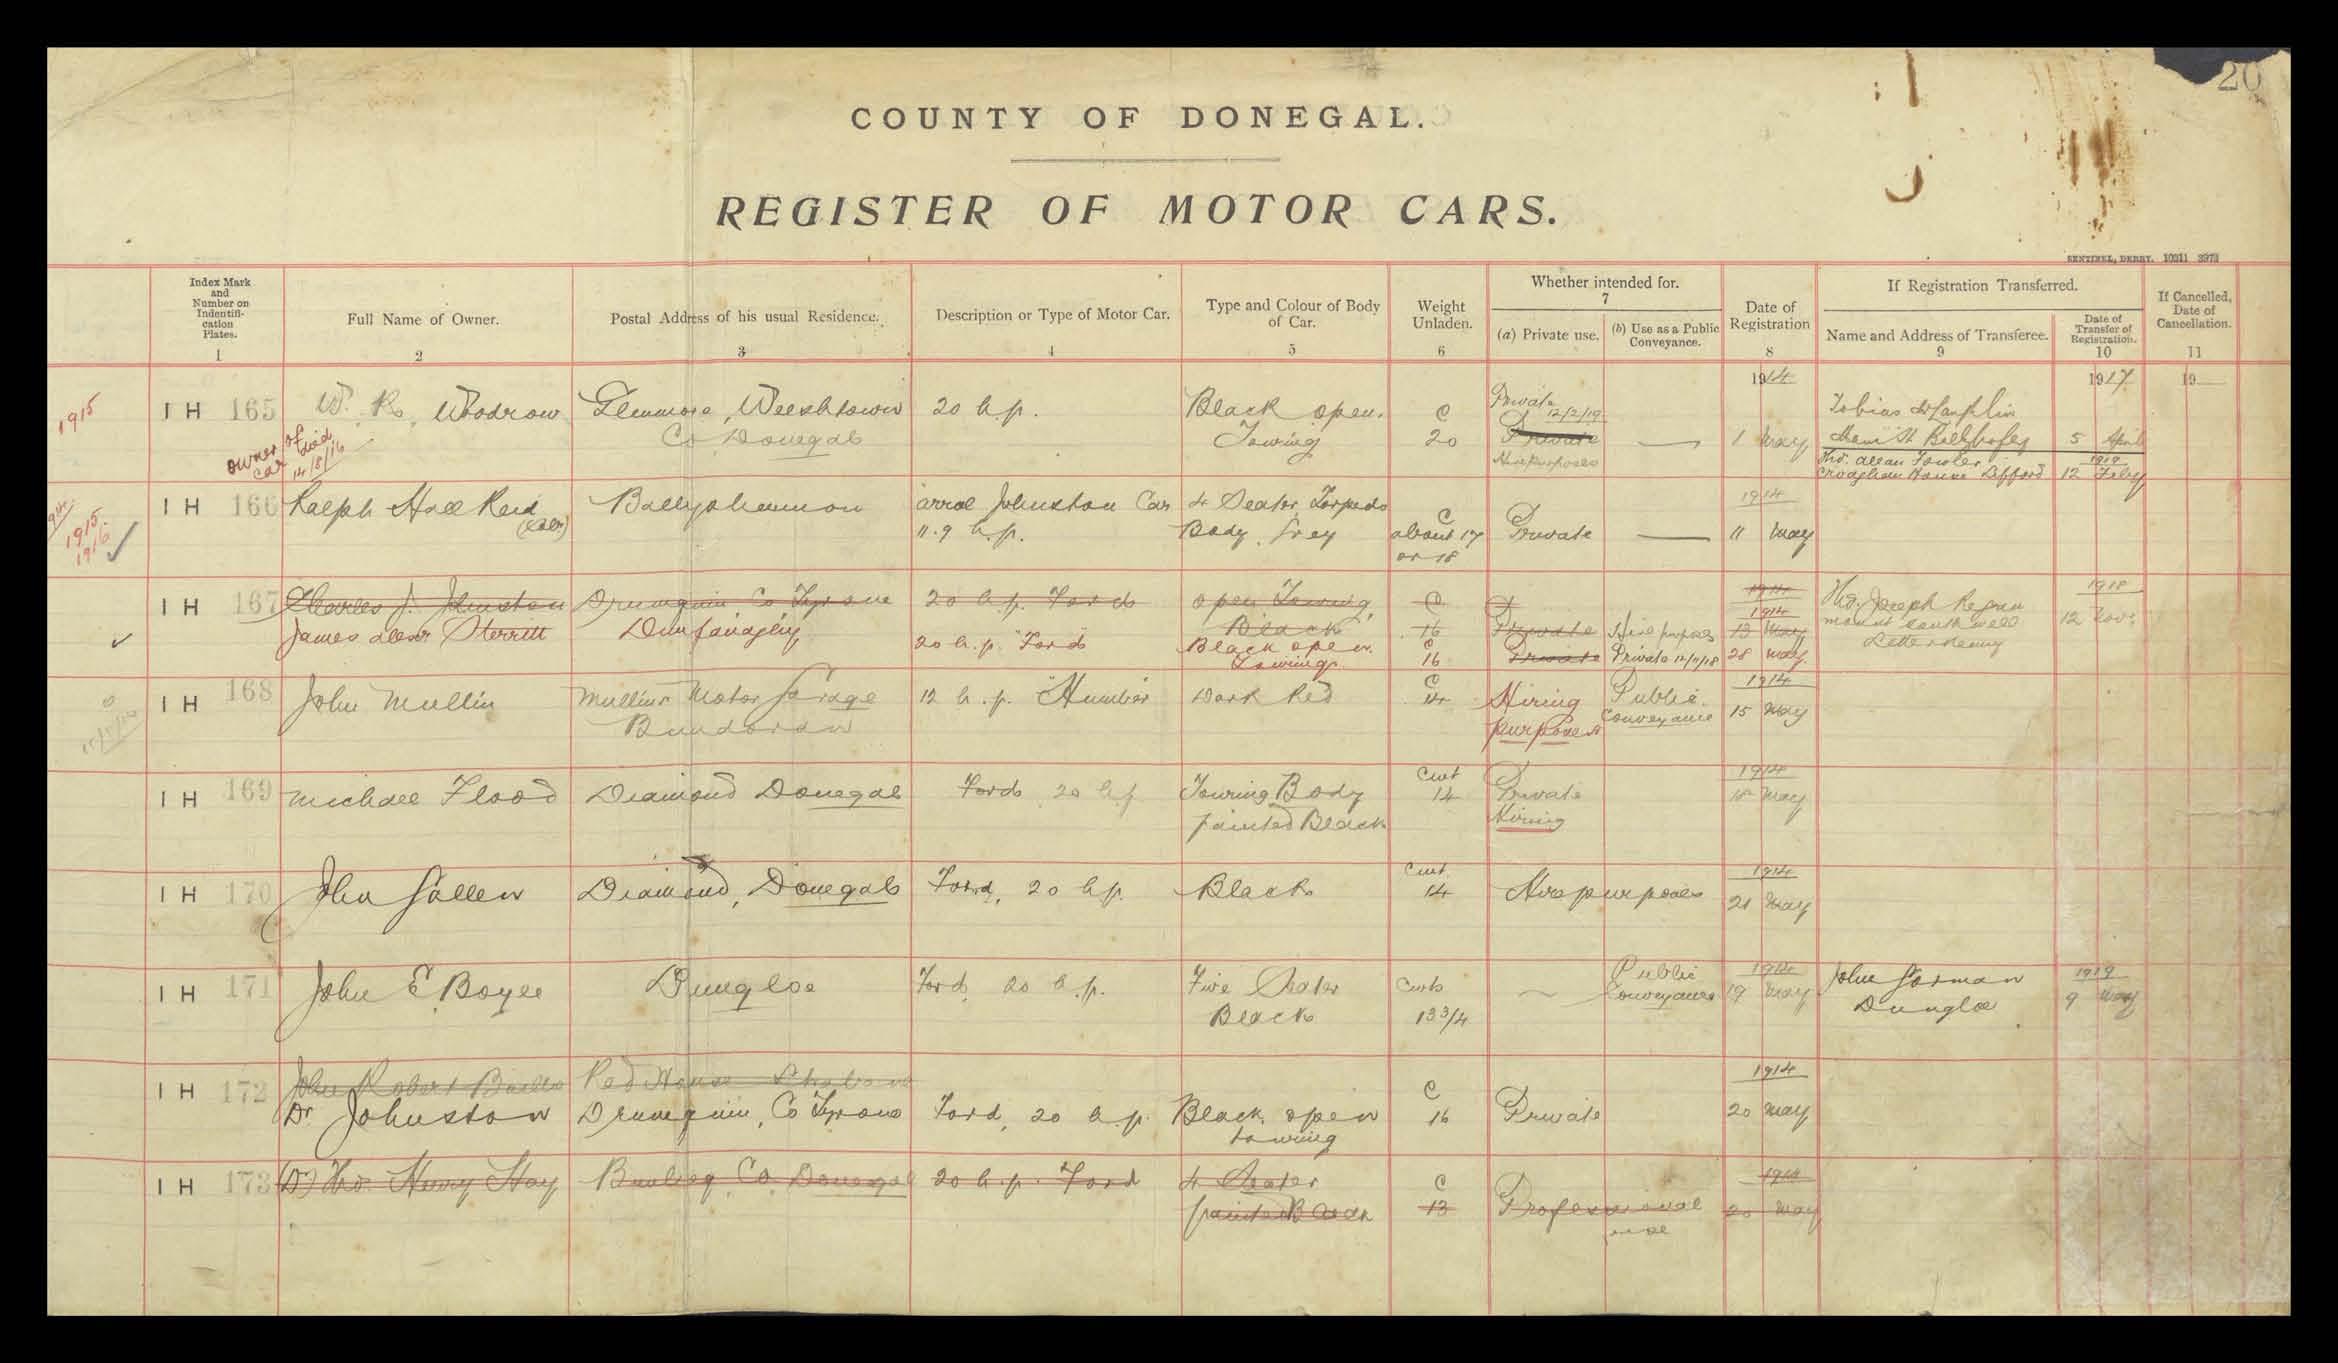 20
COUNTY OF DONEGAL.
REGISTER OF MOTOR CARS.
SENTINEL, DERRY. 10311 3973
Index Mark and Number on Indentifi-cation Plates. 1
Full Name of Owner. 2
Postal Address of his usual Residence. 3
Description or Type of Motor Car. 4
Type and Colour of Body of Car. 5
Weight Unladen. 6
Whether intended for. 7
(a) Private use.
(b) Use as a Public Conveyance.
Date of Registration 8
If Registration Transferred.
Name and Address of Transferee. 9
Date of Transfer of Registration. 10
If Cancelled, Date of Cancellation. 11
1914 1917 19
1915 IH 165 W. R. Woodrow Glenmore, Welshtown 20 h.p. Black open. C Private 12/2/19 Tobias
Co Donegal Touring 20 Private — 1 May 5 April
owner of car died 14/8/16 Hire purposes Tho. Allan Fowler 1919
Croaghan House Lifford 12 Feby
IH 166 Ralph Hall Reid Ballyshannon Arrol Johnston Car 4 Seater Torpedo 1914
1915 11.9 h.p. Body, Grey C about 17 or 18 Private — 11 May
1916
IH 167 Charles J. Johnston Drumquin, Co Tyrone 20 h.p. Fords open Touring, C 1914 1918
Black 16 Private Hire purposes 1914 13 May Joseph 12 Novr
James Alexr Sterritt Dunfanaghy 20 h.p. Fords Black open Touring C 16 Private Private 12/11/18 28 May Letterkenny
IH 168 John Mullin Mullins Motor Garage 12 h.p. "Humber Dark Red C 14 Hiring Public 1914
Bundoran purposes Conveyance 15 May
IH 169 Michael Flood Diamond Donegal Fords 20 h.p. Touring Body Cwt 14 Private 1914
painted Black Hiring May
IH 170 John Gallen Diamond, Donegal Ford, 20 h.p. Black Cwt. 14 Hire purposes 1914
21 May
IH 171 John E Boyle Dungloe Ford, 20 h.p. Five Seater Cwts Public 1914 John Gorman 1919
Black 13 3/4 Conveyance 19 May Dungloe 9 May
IH 172 John Robert Red House Strabane C 1914
Dr. Johnston Drumquin, Co Tyrone Ford, 20 h.p. Black, open touring 16 Private 20 May
IH 173 (Dr) Tho. Henry Hay Co Donegal 20 h.p. Ford 4 Seater C 1914
painted Black 13 Professional use 20 May